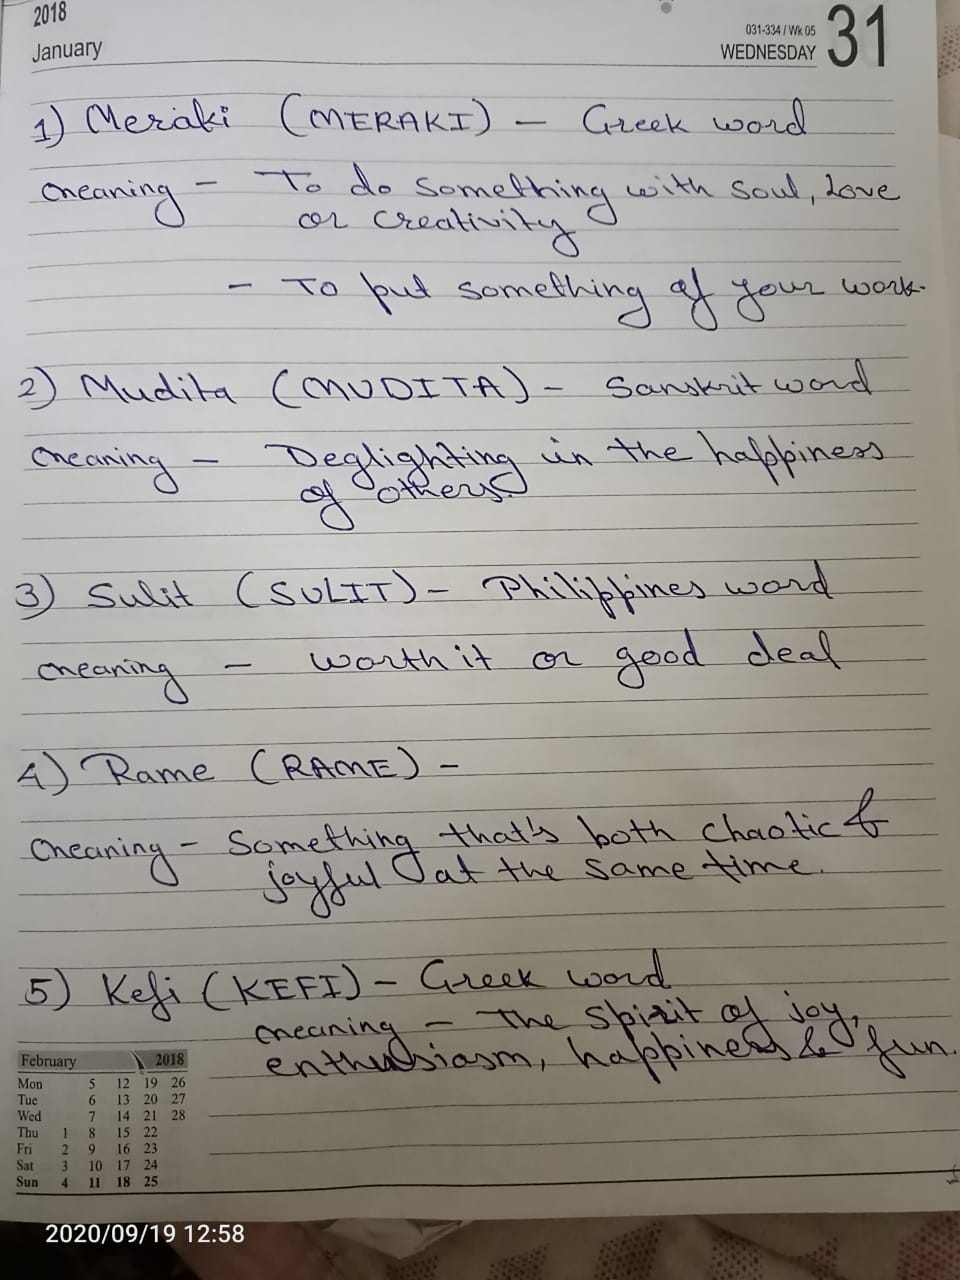 2018
January
031-334 / Wk 05
WEDNESDAY
31
1) Meraki (MERAKI) - Greek word
meaning - To do something with soul, Love
or creativity
- To put something of your work.
2) Mudita (MUDITA) - Sanskrit word
meaning - Deglighting in the happiness
of others
3) Sulit (SULIT) - Philippines word
meaning - worth it or good deal
4) Rame (RAME) -
meaning - Something that's both chaotic &
joyful at the same time.
5) Kefi (KEFI) - Greek word
meaning - The spirit of joy,
enthusiasm, happiness & fun.
February 2018
Mon 5 12 19 26
Tue 6 13 20 27
Wed 7 14 21 28
Thu 1 8 15 22
Fri 2 9 16 23
Sat 3 10 17 24
Sun 4 11 18 25
2020/09/19 12:58